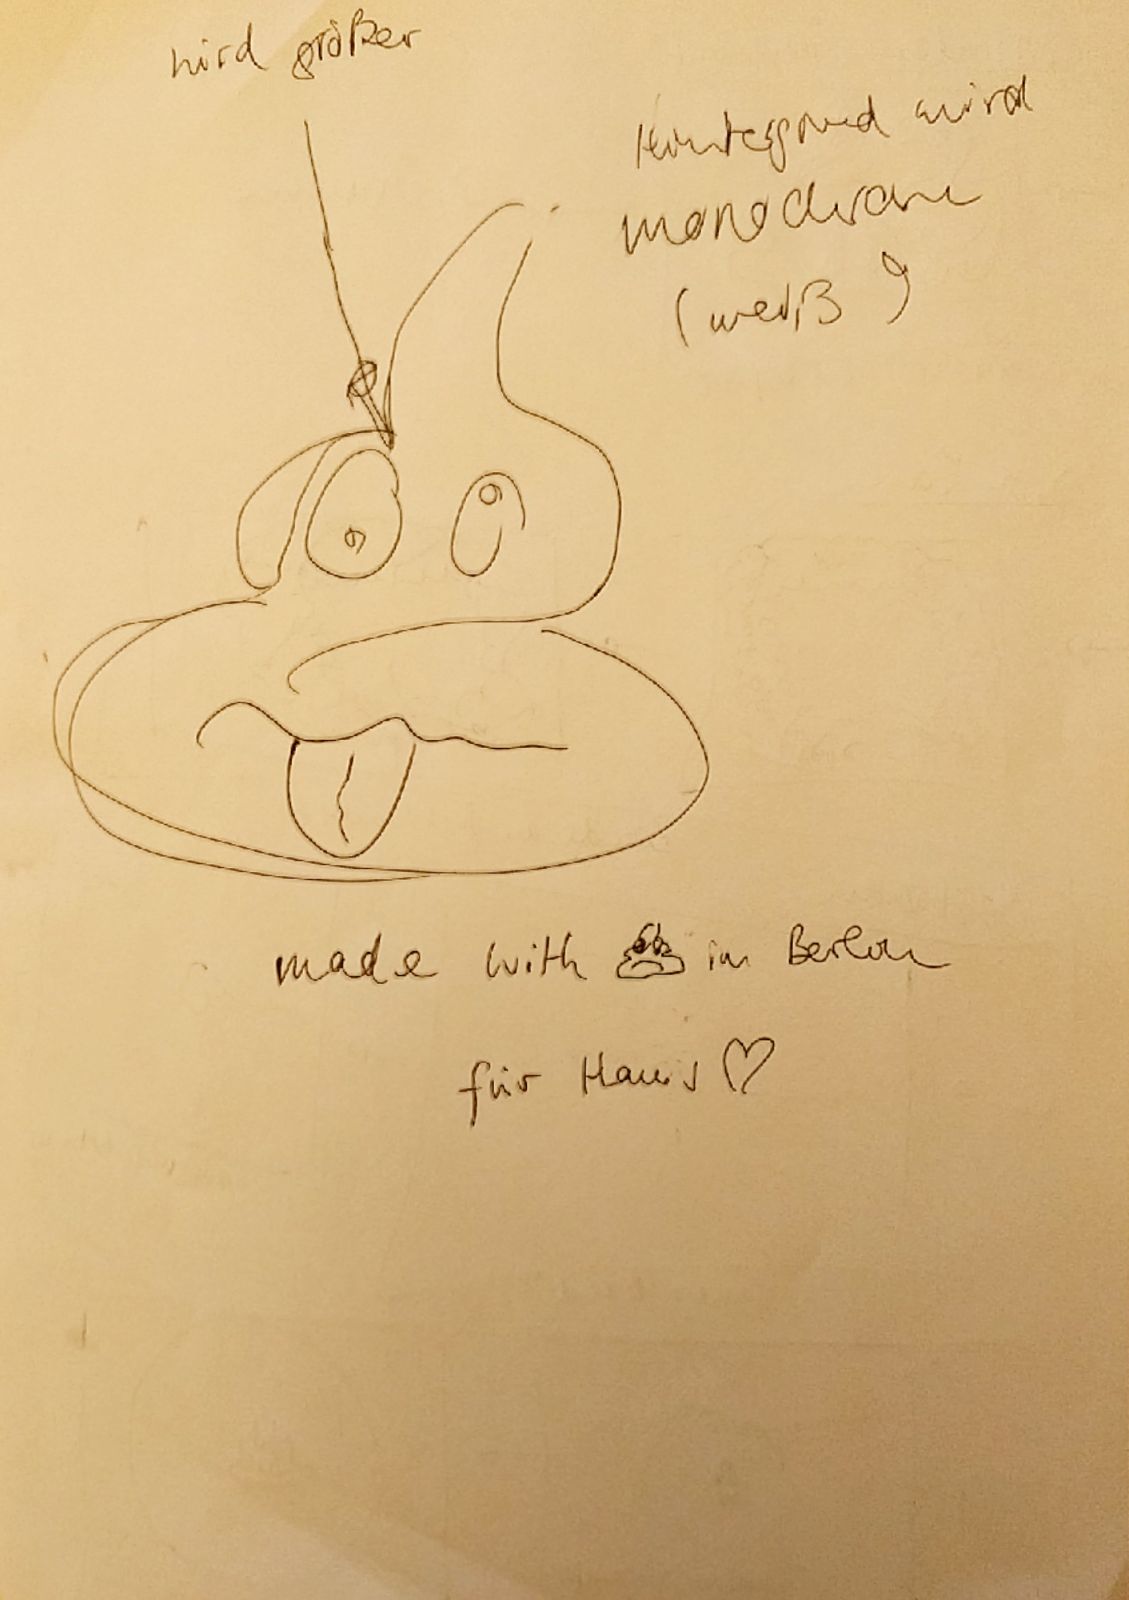 wird größer
Hintergrund wird
monochrom
(weiß)
made with 💩 in Berlin
für Hans ♡